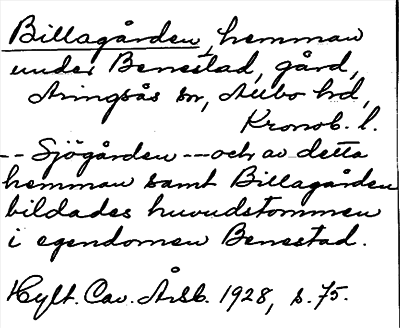 Billagården, hemman
under Benestad, gård,
Aringsås sn, Allbo hd,
Kronob. l.
-- Sjögården -- och av detta
hemman samt Billagården
bildades huvudstommen
i egendomen Benestad.
Hylt. Cav. Årsb. 1928, s. 75.